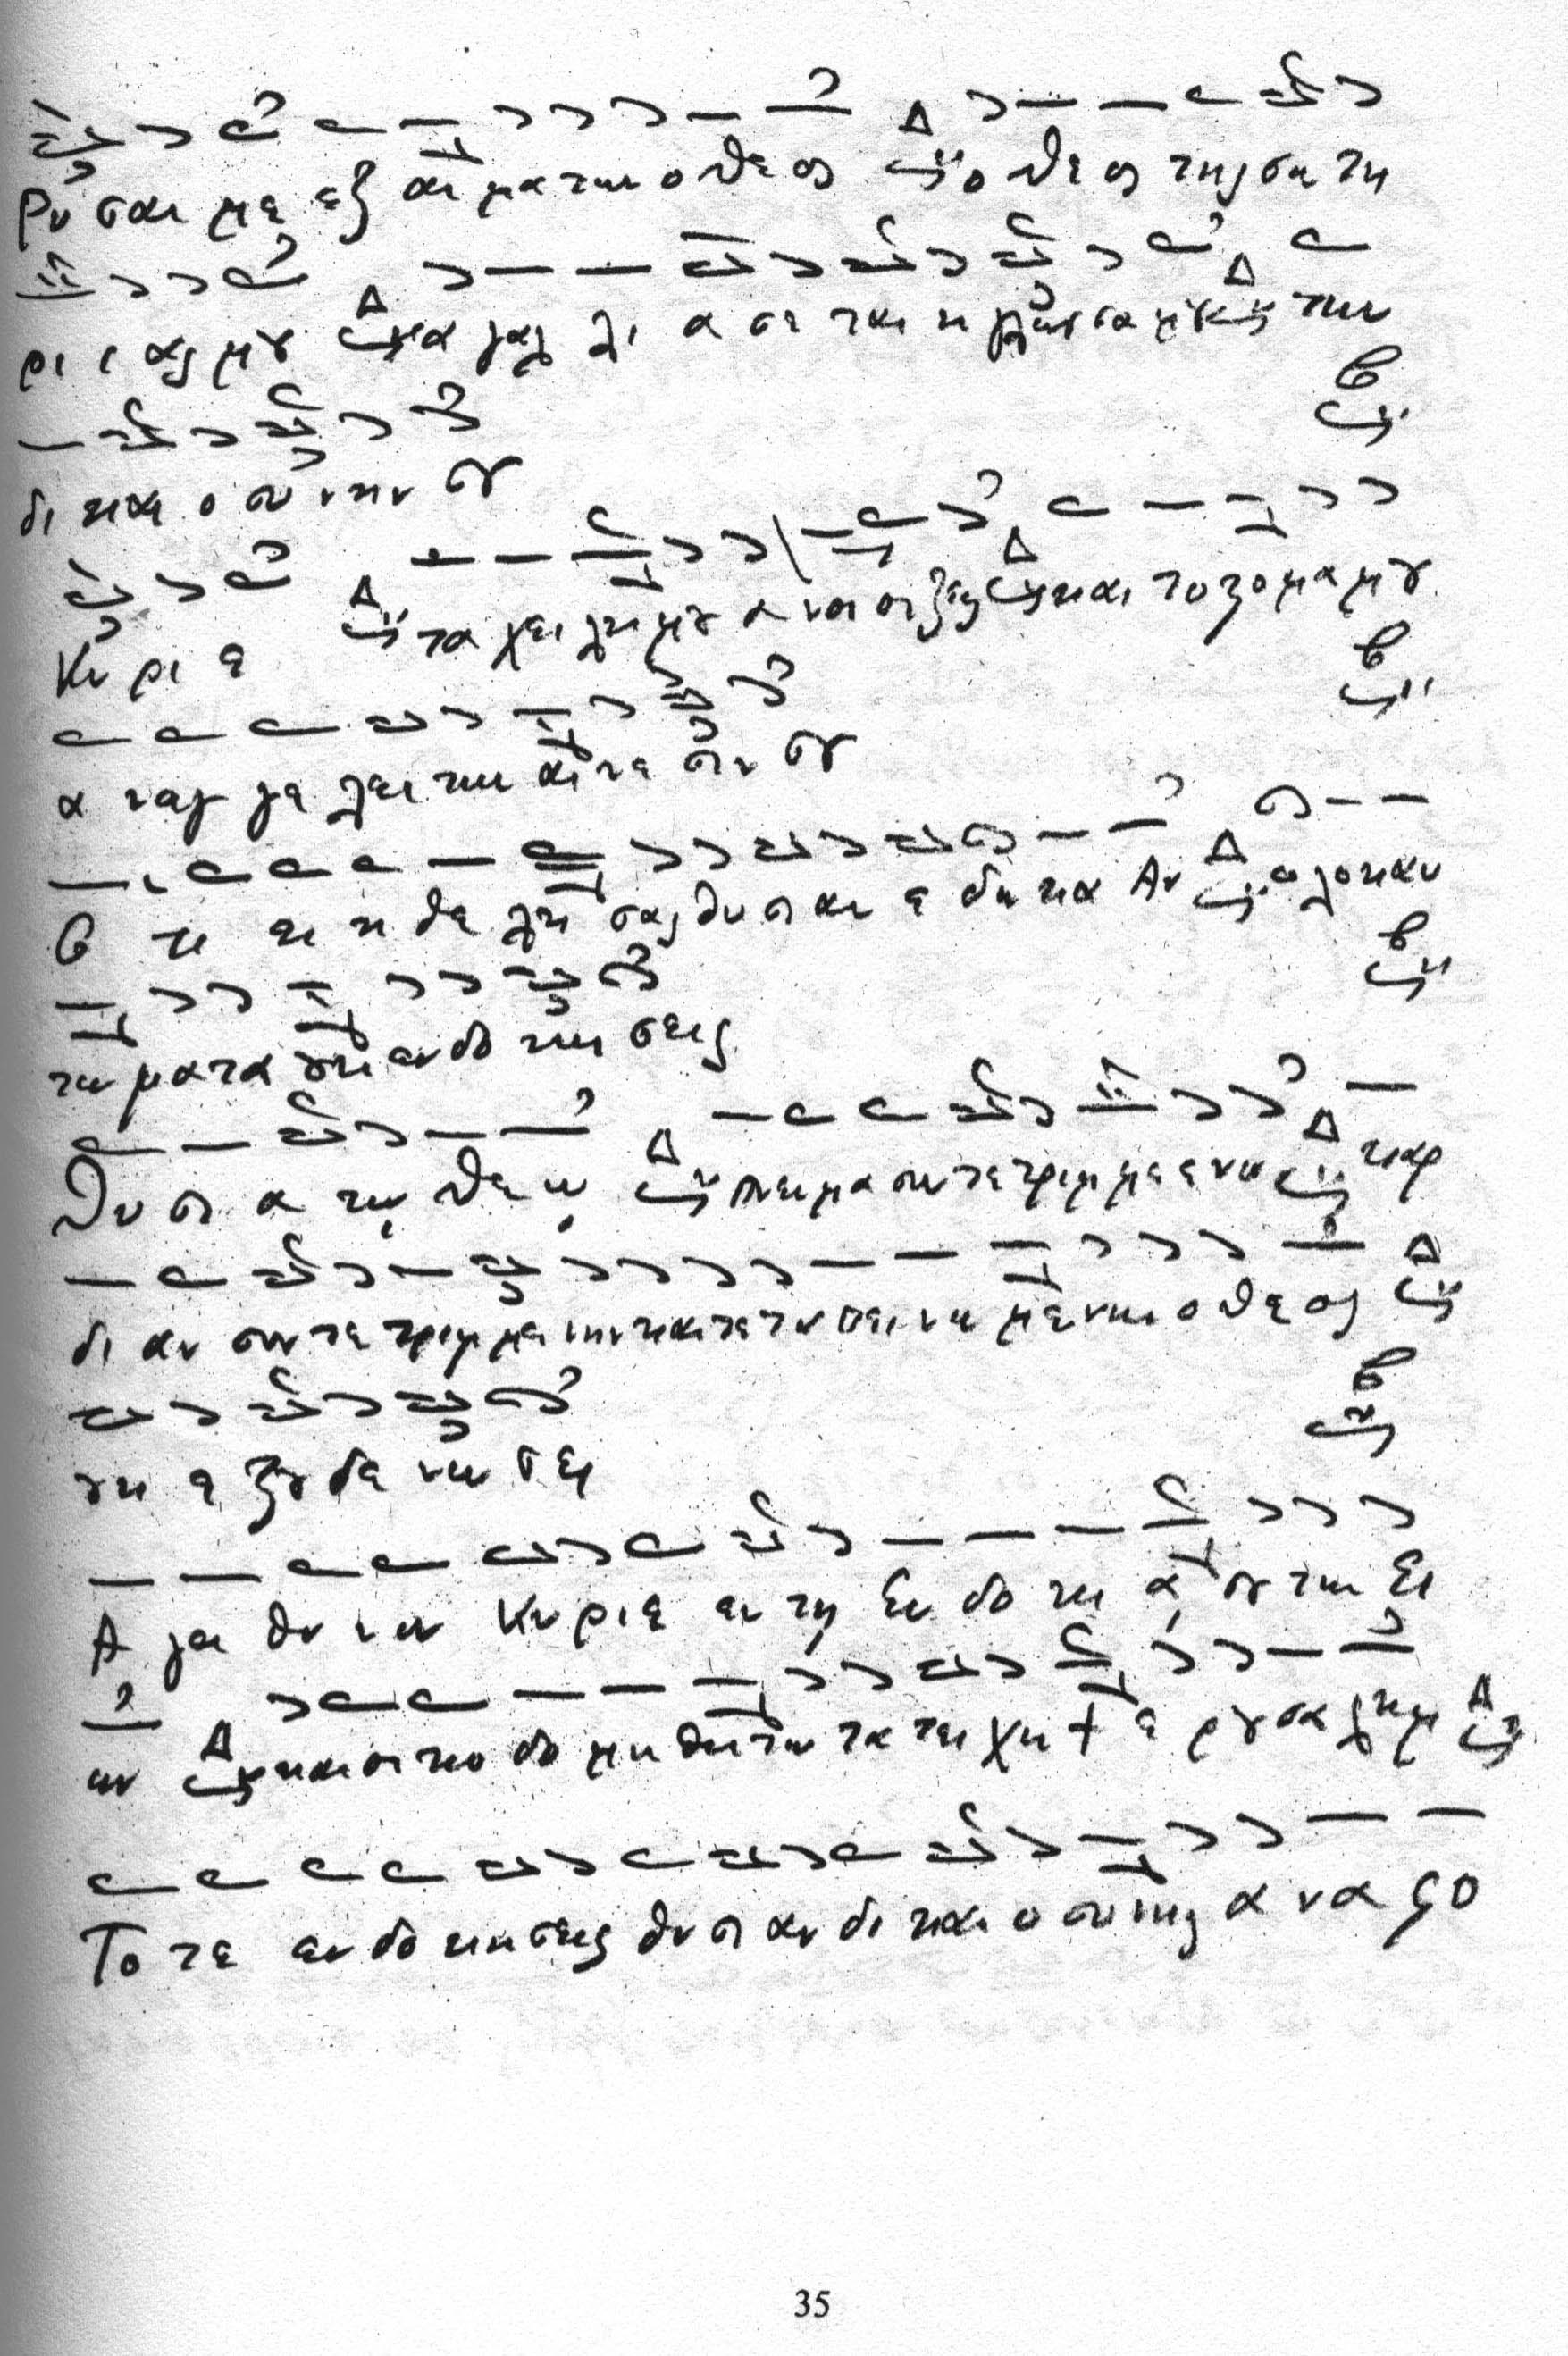 Ρυ σαι με εξ αι μα των ο θε ος ο θε ος της σω τη
ρι ι ας μȣ α γαλ λι α σε ται η γλωσ σα μȣ την
δι και ο συ νην σȣ
Κυ ρι ε τα χει λη μȣ α νοι οι ξεις και το στο μα μȣ
α ναγ γε λει την αι νε σιν σȣ
Ο τι ει η θε λη σας θυ σι αν ε δω κα Αν ο λο καυ
τω μα τα ȣκ ευ δο κη σεις
Θυ σι α τῳ Θε ῳ πνευ μα συν τε τριμ με ε νον καρ
δι αν συν τε τριμ με νην και τε τα πει νω με νην ο Θε ος
ȣκ ε ξȣ δε νω σει
Α γα θυ νον Κυ ρι ε εν τῃ Ευ δο κι ᾳ σȣ την Σι
ων και οι κο δο μη θη τω τα τει χη Ι ε ρȣ σα λημ
Το τε ευ δο κη σεις θυ σι αν δι και ο συ νης α να φο
35